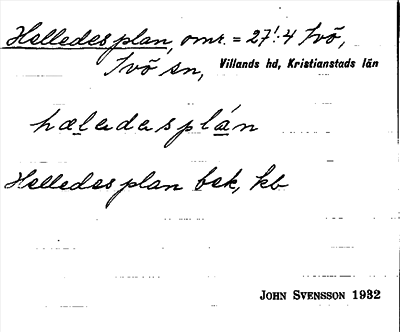 Helledesplan, omr. = 27!:4 Ivö,
Ivö sn, Villands hd, Kristianstads län
hæledasplán
Helledesplan bsk, kb
JOHN SVENSSON 1932